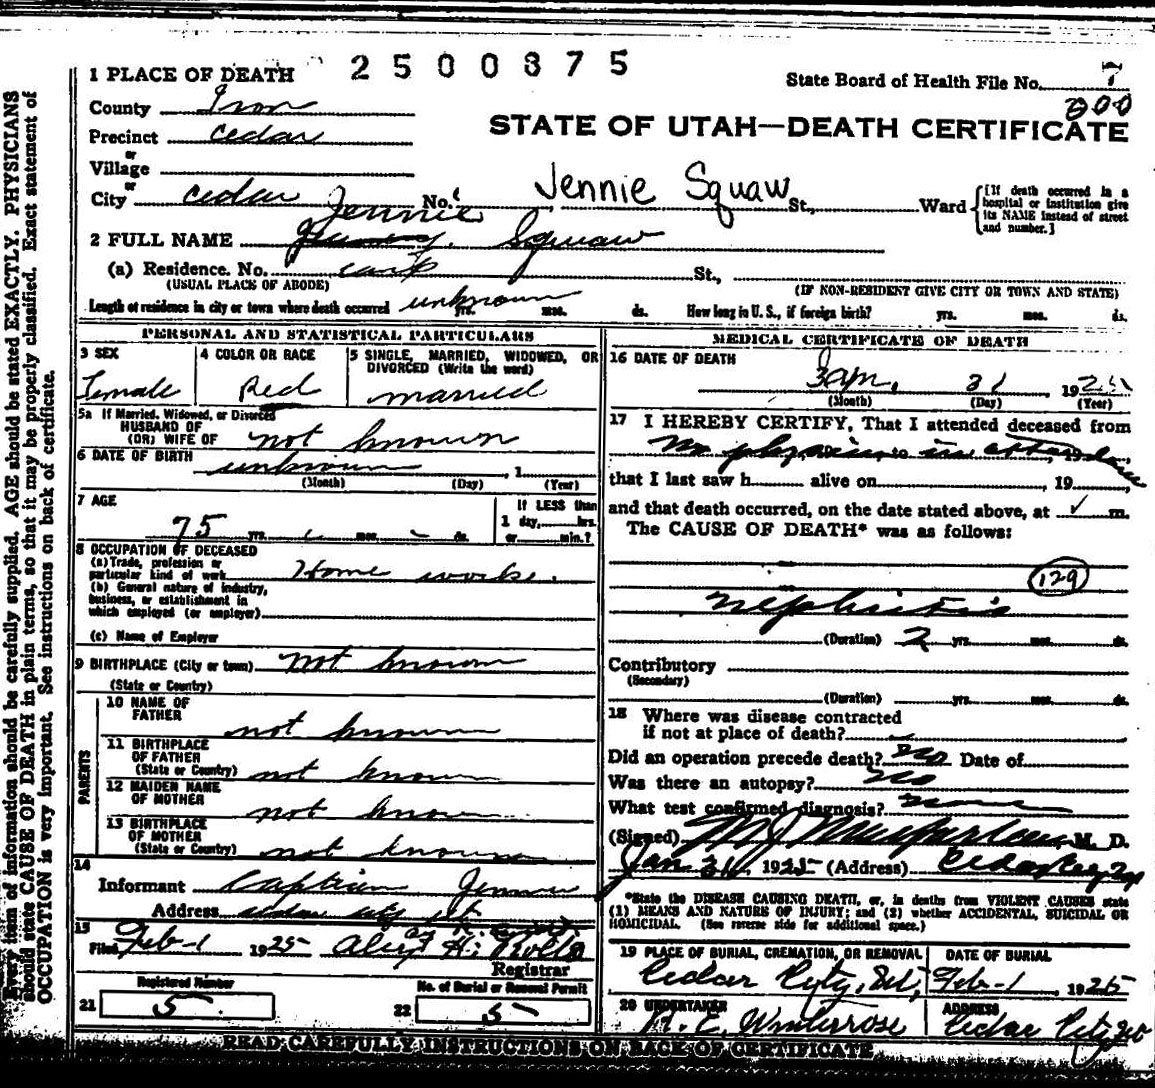 2500375
State Board of Health File No. 7
200
1 PLACE OF DEATH
County Iron
STATE OF UTAH—DEATH CERTIFICATE
Precinct Cedar
or
Village
or
City Cedar No. Jennie Squaw St., Ward
[If death occurred in a hospital or institution give its NAME instead of street and number.]
Jennie
2 FULL NAME Squaw
(a) Residence. No. camp St.,
(USUAL PLACE OF ABODE) (IF NON-RESIDENT GIVE CITY OR TOWN AND STATE)
Length of residence in city or town where death occurred unknown yrs. mos. ds. How long in U. S., if foreign birth? yrs. mos. ds.
PERSONAL AND STATISTICAL PARTICULARS
3 SEX
Female
4 COLOR OR RACE
Red
5 SINGLE, MARRIED, WIDOWED, OR
DIVORCED (Write the word)
married
5a If Married, Widowed, or Divorced
HUSBAND OF
(OR) WIFE OF not known
6 DATE OF BIRTH unknown , 1
(Month) (Day) (Year)
7 AGE
75 yrs. mos. ds.
If LESS than
1 day, hrs.
or min.?
8 OCCUPATION OF DECEASED
(a) Trade, profession or
particular kind of work Home work.
(b) General nature of industry,
business, or establishment in
which employed (or employer)
(c) Name of Employer
9 BIRTHPLACE (City or town) not known
(State or Country)
PARENTS
10 NAME OF
FATHER not known
11 BIRTHPLACE
OF FATHER
(State or Country) not known
12 MAIDEN NAME
OF MOTHER not known
13 BIRTHPLACE
OF MOTHER
(State or Country) not known
14
Informant Captian
Address Cedar City Ut
15
Filed Feb-1 1925 H. Rollo
Registrar
Registered Number
21 5
No. of Burial or Removal Permit
22 5
MEDICAL CERTIFICATE OF DEATH
16 DATE OF DEATH
31 192
(Month) (Day) (Year)
17 I HEREBY CERTIFY, That I attended deceased from
No physician in 19
that I last saw h alive on , 19 ,
and that death occurred, on the date stated above, at m.
The CAUSE OF DEATH* was as follows:
129
Nephritis
(Duration) 2 yrs. mos. ds.
Contributory
(Secondary)
(Duration) yrs. mos. ds.
18 Where was disease contracted
if not at place of death?
Did an operation precede death? No Date of
Was there an autopsy? No
What test confirmed diagnosis? none
(Signed) M J Macfarlane M. D.
Jan 31, 1925 (Address) Cedar City
*State the DISEASE CAUSING DEATH, or, in deaths from VIOLENT CAUSES state
(1) MEANS AND NATURE OF INJURY; and (2) whether ACCIDENTAL, SUICIDAL OR
HOMICIDAL. (See reverse side for additional space.)
19 PLACE OF BURIAL, CREMATION, OR REMOVAL
Cedar City, Ut,
DATE OF BURIAL
Feb-1 1925
20 UNDERTAKER
Winterrose
ADDRESS
Cedar City
READ CAREFULLY INSTRUCTIONS ON BACK OF CERTIFICATE
Every item of information should be carefully supplied. AGE should be stated EXACTLY. PHYSICIANS
should state CAUSE OF DEATH in plain terms, so that it may be properly classified. Exact statement of
OCCUPATION is very important. See instructions on back of certificate.